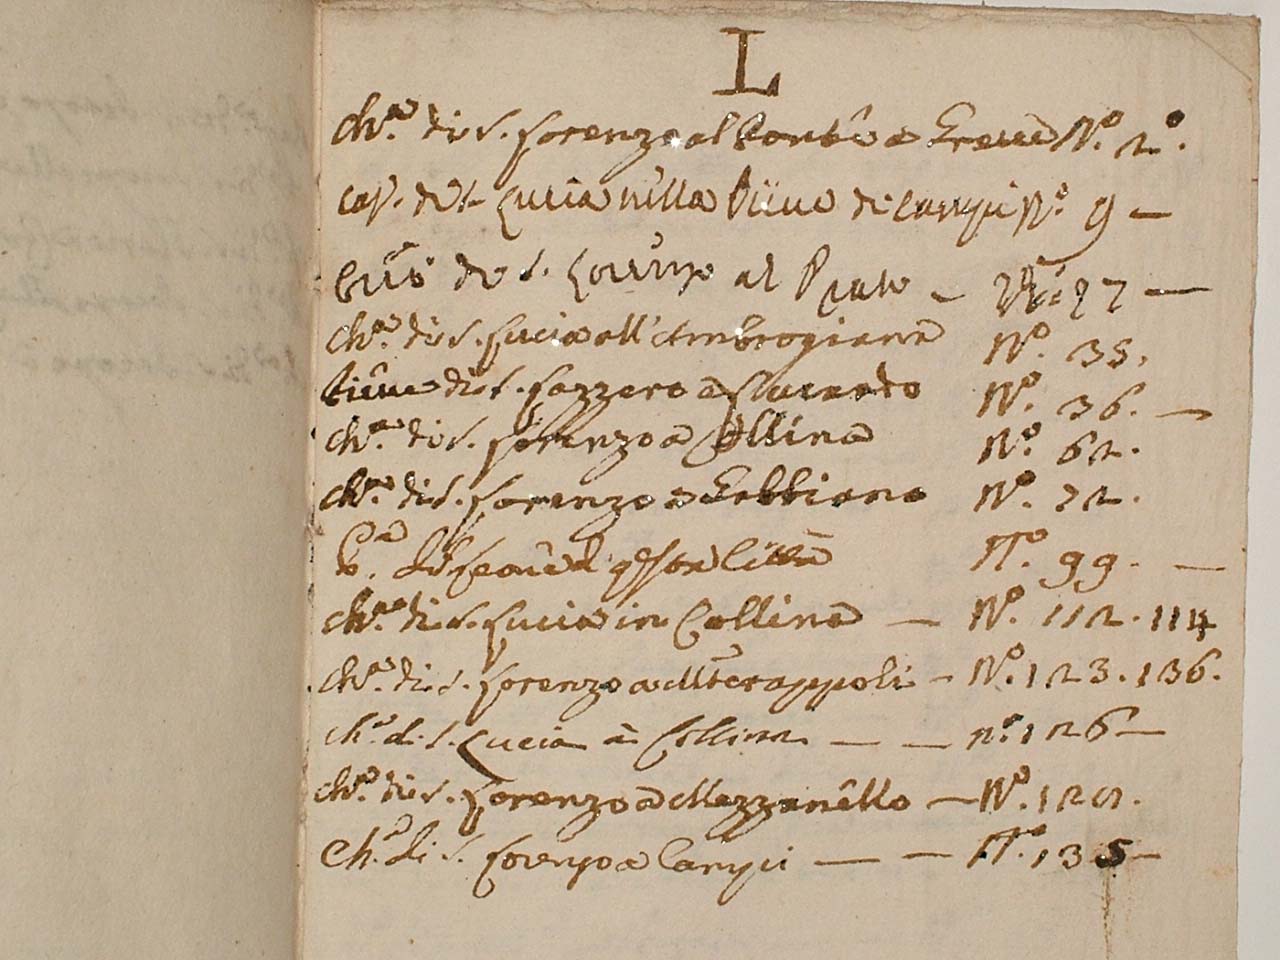 L
Ch.ª di S. Lorenzo al Ponte a Greve N.º 2.º
Cap. de S. Lucia nella Pieve di Campi N.º 9 —
de S. Lorenzo al Prato — 27 —
Ch.ª di S. Lucia all'Ambrogiana N.º 35.
Pieve di S. Lazzero a Lucardo N.º 36. —
Ch.ª di S. Lorenzo a Collina N.º 62.
Ch.ª di S. Lorenzo a Gabbiano N.º 72.
N.º 99. —
Ch.ª di S. Lucia in Collina — N.º 112. 114
Ch.ª di S. Lorenzo a Mterappoli — N.º 123. 136.
Ch.ª di S. Lucia à Collina — — n.º 126 —
Ch.ª di S. Lorenzo a Mezzanello — N.º 129.
Ch.ª di S. Lorenzo a Campi — — N.º 135 —